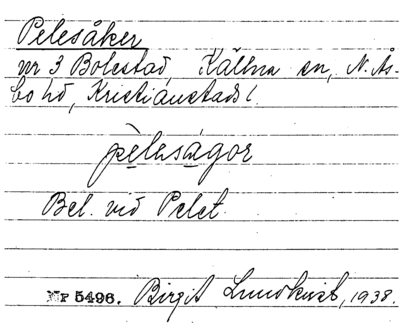 Pelesåker
nr 3 Bolestad, Källna sn, N. Ås-
bo hd, Kristianstads l.
pèleságor
Bel. vid Pelet.
Nr 5496. Birgit Lundkvist, 1938.